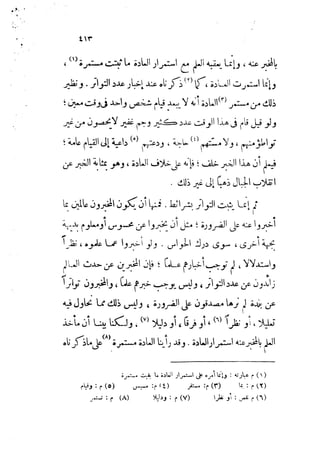 ٤١٣
بالمخبر عنه ، وإنما يعقبه العلم مع استمرار العادة ما ثبتت مستمرة (١) ،
وإنما استمرت العادة ، كما (٢) ذكرناه عند إخبار عدد التواتر . ونظير
ذلك من مستمر (٣) العادة أنه لا يبعد قيام شخص واحد في وقت معين ؛
ولو قيل قام في هذا الوقت عدد كثير وجم غفير لا يحصون من غير
تواطؤ منهم ، ولا مستهم (٤) حاجة ، ودعتهم (٥) داعية إلى القيام عامة ؛
فيعلم أن هذا الخبر خلف ؛ فإنه على خلاف العادة ، وهو بمثابة الخبر عن
انقلاب الجبال ذهباً إلى غير ذلك .
ثم إنما يثبت التواتر بشرائط . فمنها أن يكون المخبرون عالمين بما
أخبروا عنه على الضرورة ؛ مثل أن يخبروا عن محسوس أو معلوم بديهة
بجهة أخرى ، سوى درك الحواس . ولو أخبروا عما علموه ، نظراً
واستدلالا ، لم توجب أخبارهم علماً ؛ فإن المخبرين عن حدث العالم
زائدون عن عدد التواتر ، وليس يوجب خبرهم علماً ، والمخبرون تواتراً
عن بلدة لم نرها مصدقون على الضرورة ، وليس ذلك مما نحاول فيه
تعليلا ، أو نظراً (٦) ، أو فرقاً ، أو دليلا (٧) ، ولكنا بينا أن مأخذ
العلم بالمخبر عنه استمرار العادة . وقد رأينا العادة مستمرة (٨) على ما ذكرناه
(١) م عبارته : وإنما أمره على استمرار العادة ما بقيت مستمرة
(٢) م : بما (٣) م : مستقر (٤) م : مسيس (٥) م : وقيام
(٦) م نقص : أو نظرا (٧) م : ودليلا (٨) م : تستمر